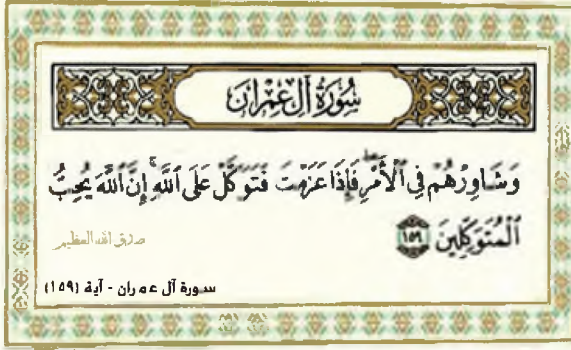 سُورَةُ آلِ عِمْرَانَ
وَشَاوِرْهُمْ فِي ٱلْأَمْرِ ۖ فَإِذَا عَزَمْتَ فَتَوَكَّلْ عَلَى ٱللَّهِ ۚ إِنَّ ٱللَّهَ يُحِبُّ
ٱلْمُتَوَكِّلِينَ ١٥٩
صدق الله العظيم
سورة آل عمران - آية (١٥٩)